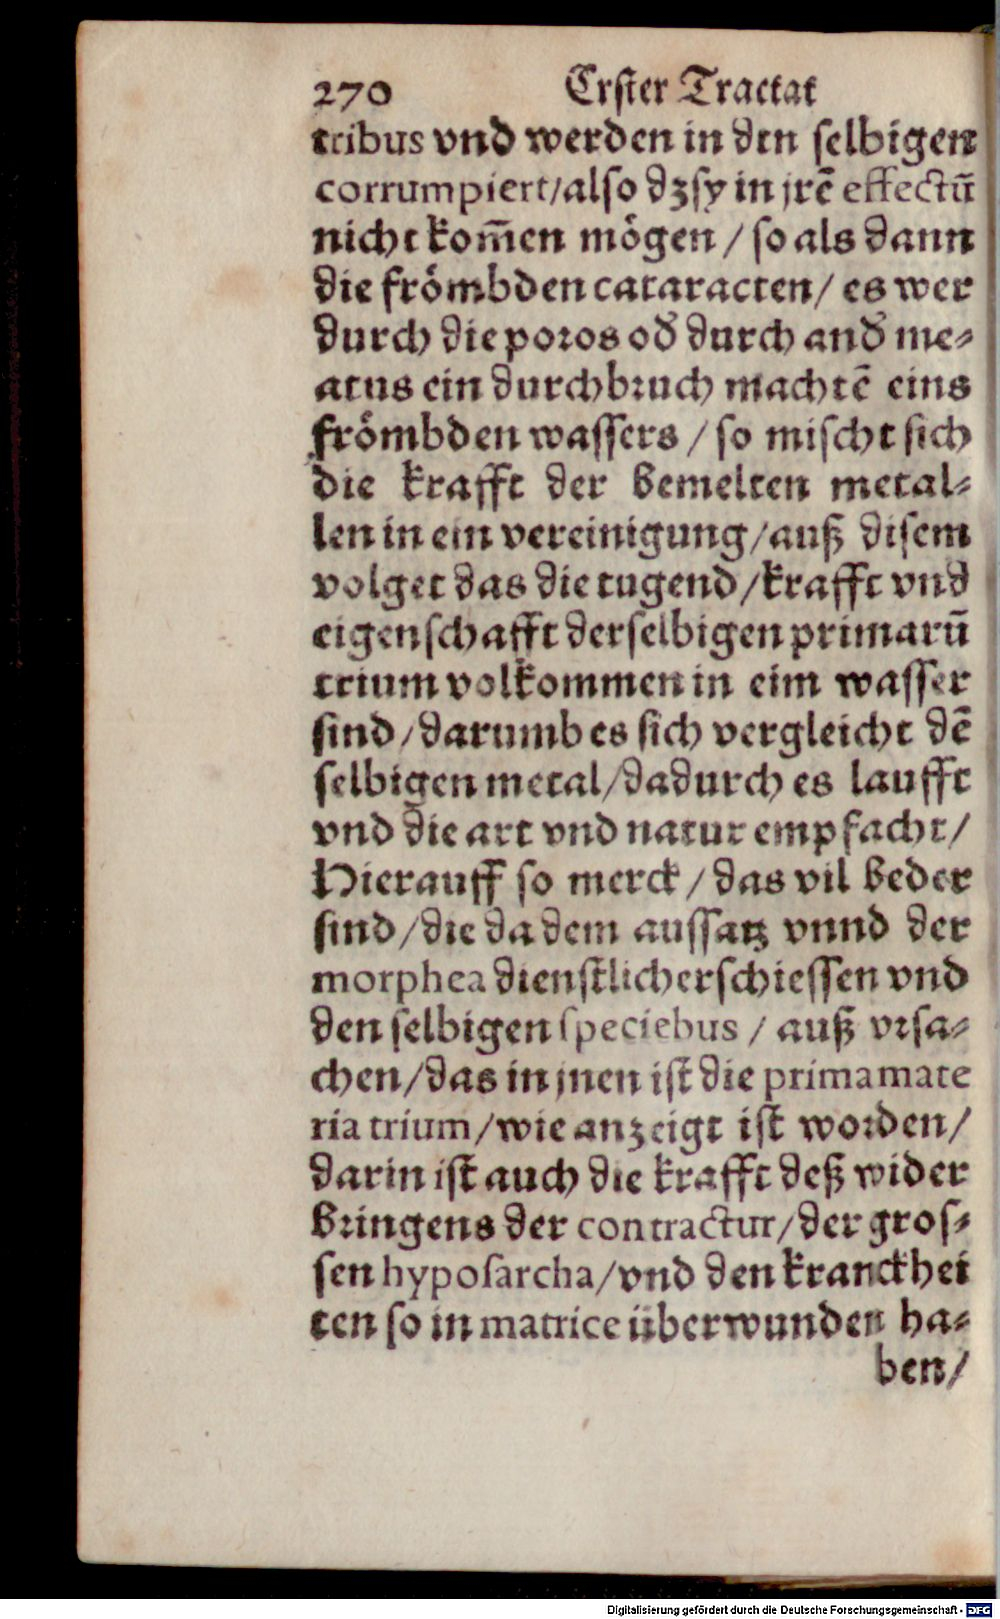 270 Erster Tractat
tribus vnd werden in den selbigen
corrumpiert/also dz sy in jrē effectū
nicht kom̄en mögen / so als dann
die frömbden cataracten / es wer
durch die poros od̛ durch and̛ me⸗
atus ein durchbruch machtē eins
frömbden wassers / so mischt sich
die krafft der bemelten metal⸗
len in ein vereinigung/auß disem
volget das die tugend/krafft vnd
eigenschafft derselbigen primarū
trium volkommen in eim wasser
sind/darumb es sich vergleicht dē
selbigen metal/dadurch es laufft
vnd die art vnd natur empfacht/
Hierauff so merck / das vil beder
sind/die da dem aussatz vnnd der
morphea dienstlich erschiessen vnd
den selbigen speciebus / auß vrsa⸗
chen/das in jnen ist die prima mate
ria trium/wie anzeigt ist worden/
darin ist auch die krafft deß wider
bringens der contractur/der gros⸗
sen hyposarcha/vnd den kranckhei
ten so in matrice überwunden ha⸗
ben/
Digitalisierung gefördert durch die Deutsche Forschungsgemeinschaft - DFG